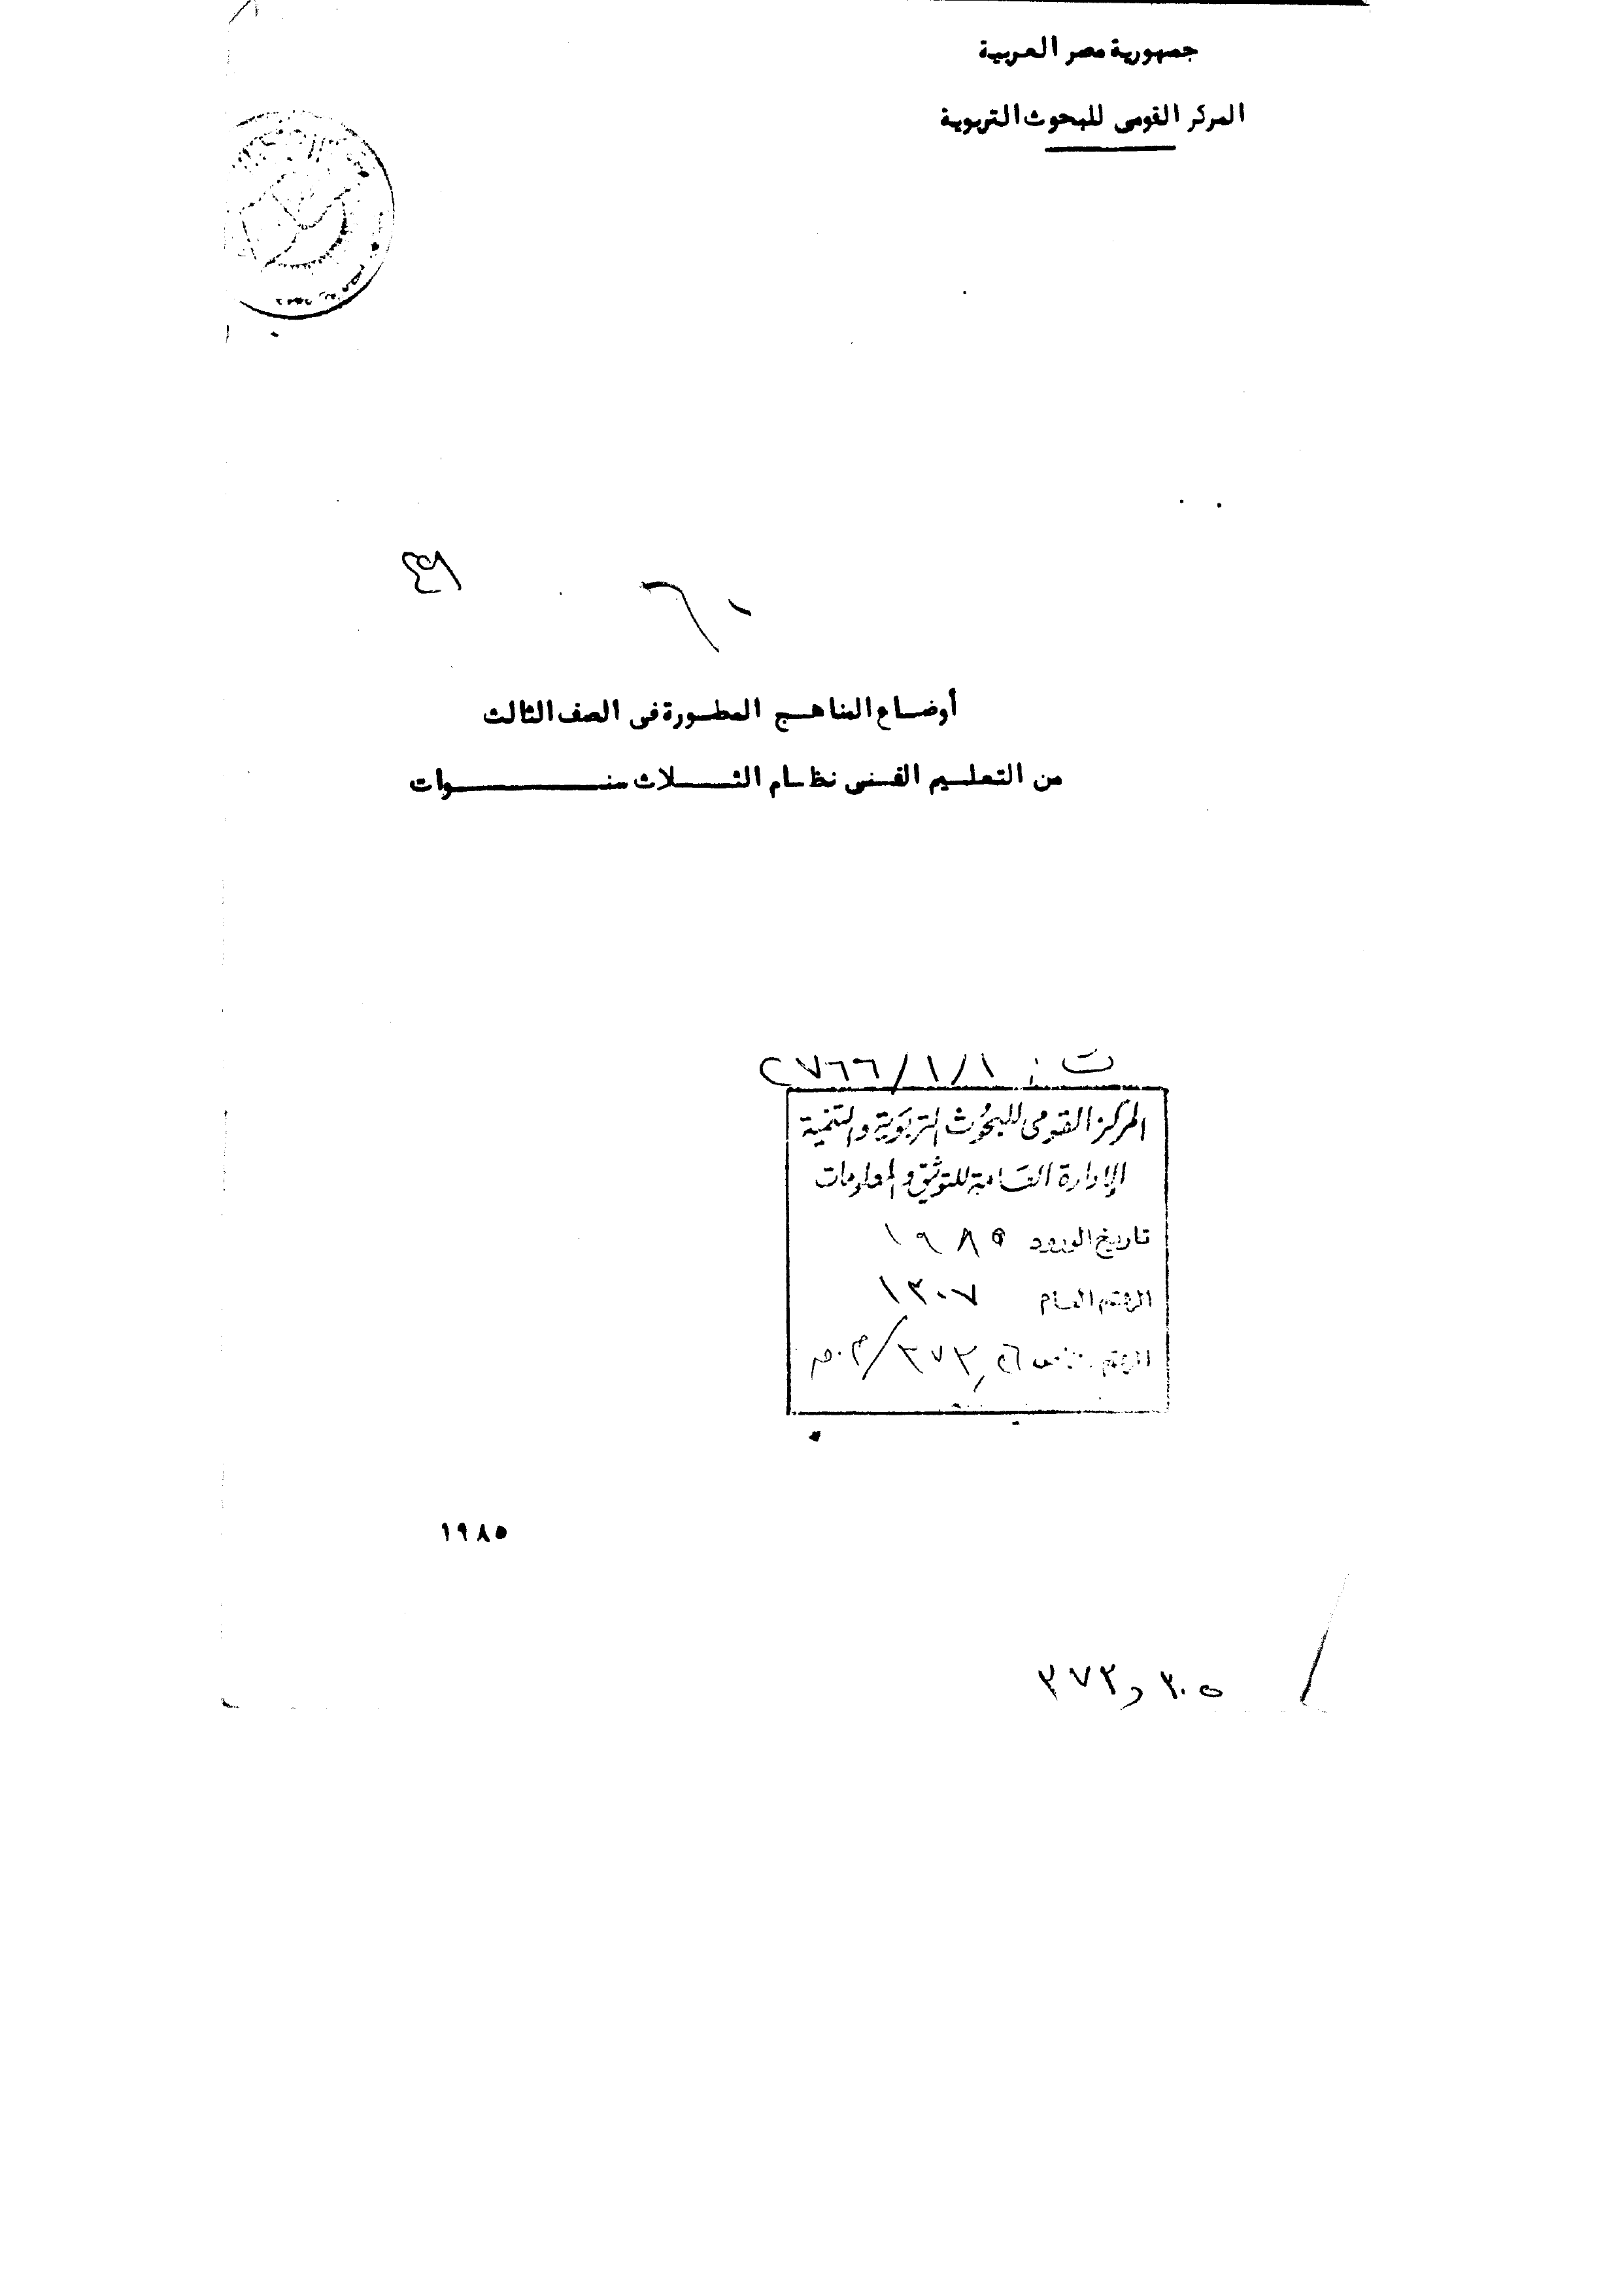 جمهورية مصر العربية
المركز القومى للبحوث التربوية
٦٠
أوضاع المناهج المطورة فى الصف الثالث
من التعليم الفنى نظام الثلاث سنوات
ت: ٢٧٦٦/١/١
المركز القومى للبحوث التربوية والتنمية
الإدارة العامة للتوثيق والمعلومات
تاريخ الورود ١٩٨٥
الرقم العام ١٣٠٧
الرقم
١٩٨٥
٣٧٣,٣٠٥